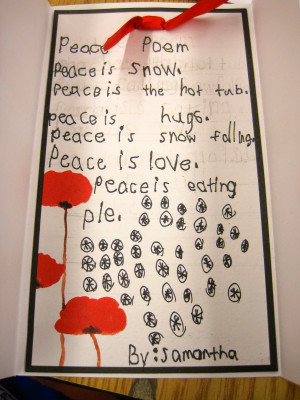 Peace Poem
Peace is snow.
Peace is the hot tub.
peace is hugs.
peace is snow falling.
Peace is love.
Peace is eating
pie.
By: Samantha